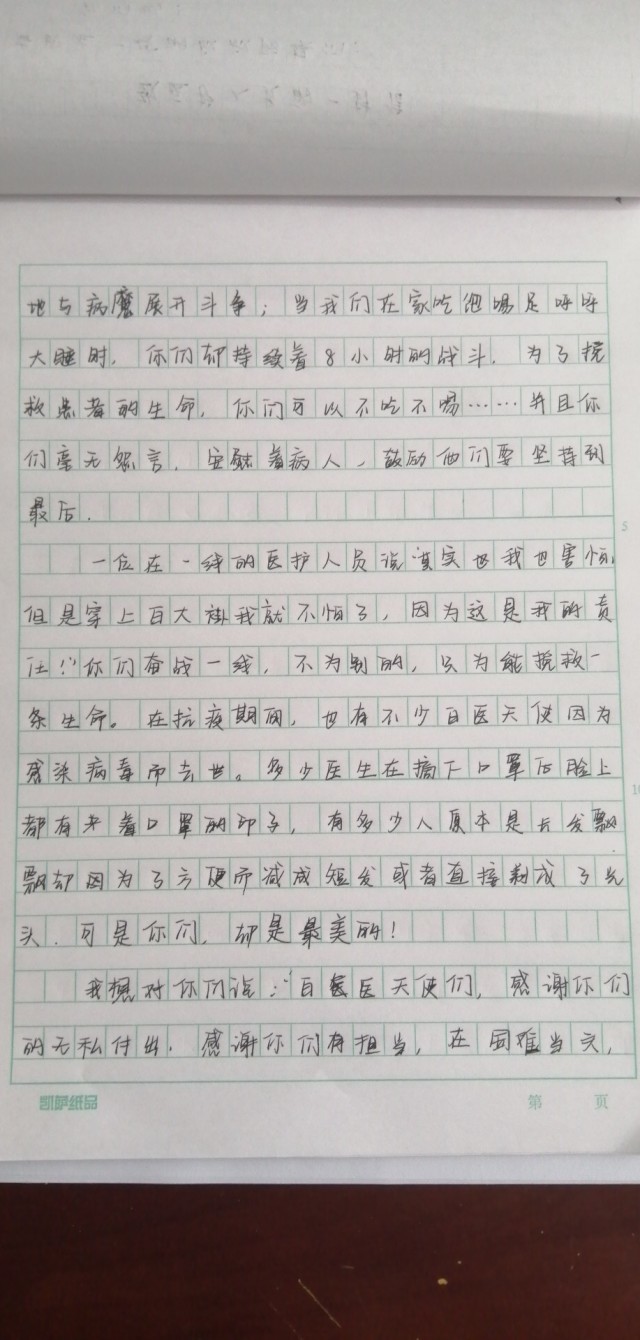 地与病魔展开斗争；当我们在家吃饱喝足呼呼
大睡时，你们却持续着8小时的战斗，为了挽
救患者的生命，你们可以不吃不喝……并且你
们毫无怨言，安慰着病人，鼓励他们要坚持到
最后.
一位在一线的医护人员说其实也我也害怕，
但是穿上百大褂我就不怕了，因为这是我的责
任！”你们奋战一线，不为别的，只为能挽救一
条生命。在抗疫期间，也有不少白医天使因为
感染病毒而去世。多少医生在摘下口罩后脸上
都有着口罩的印子，有多少人原本是长发飘
飘却因为了方便而减成短发或者直接剃成了光
头.可是你们，却是最美的！
我想对你们说：“白医天使们，感谢你们
的无私付出.感谢你们有担当，在困难当穴，
凯萨纸品
第 页
5
10